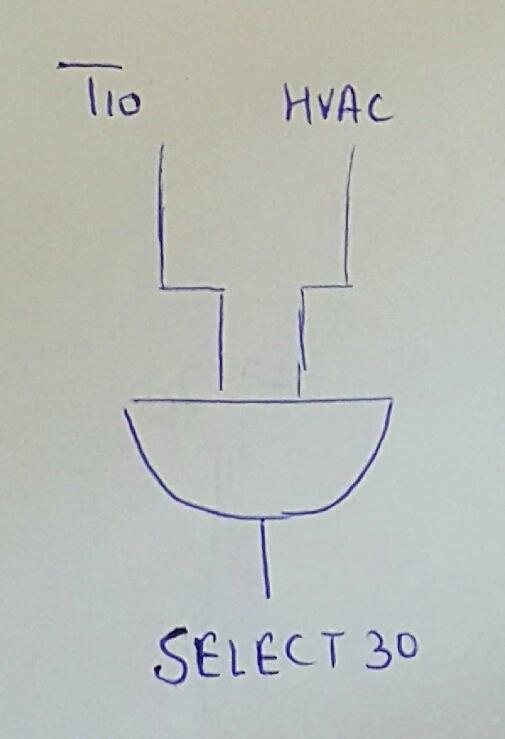 T̅1̅1̅0̅ HVAC
SELECT 30